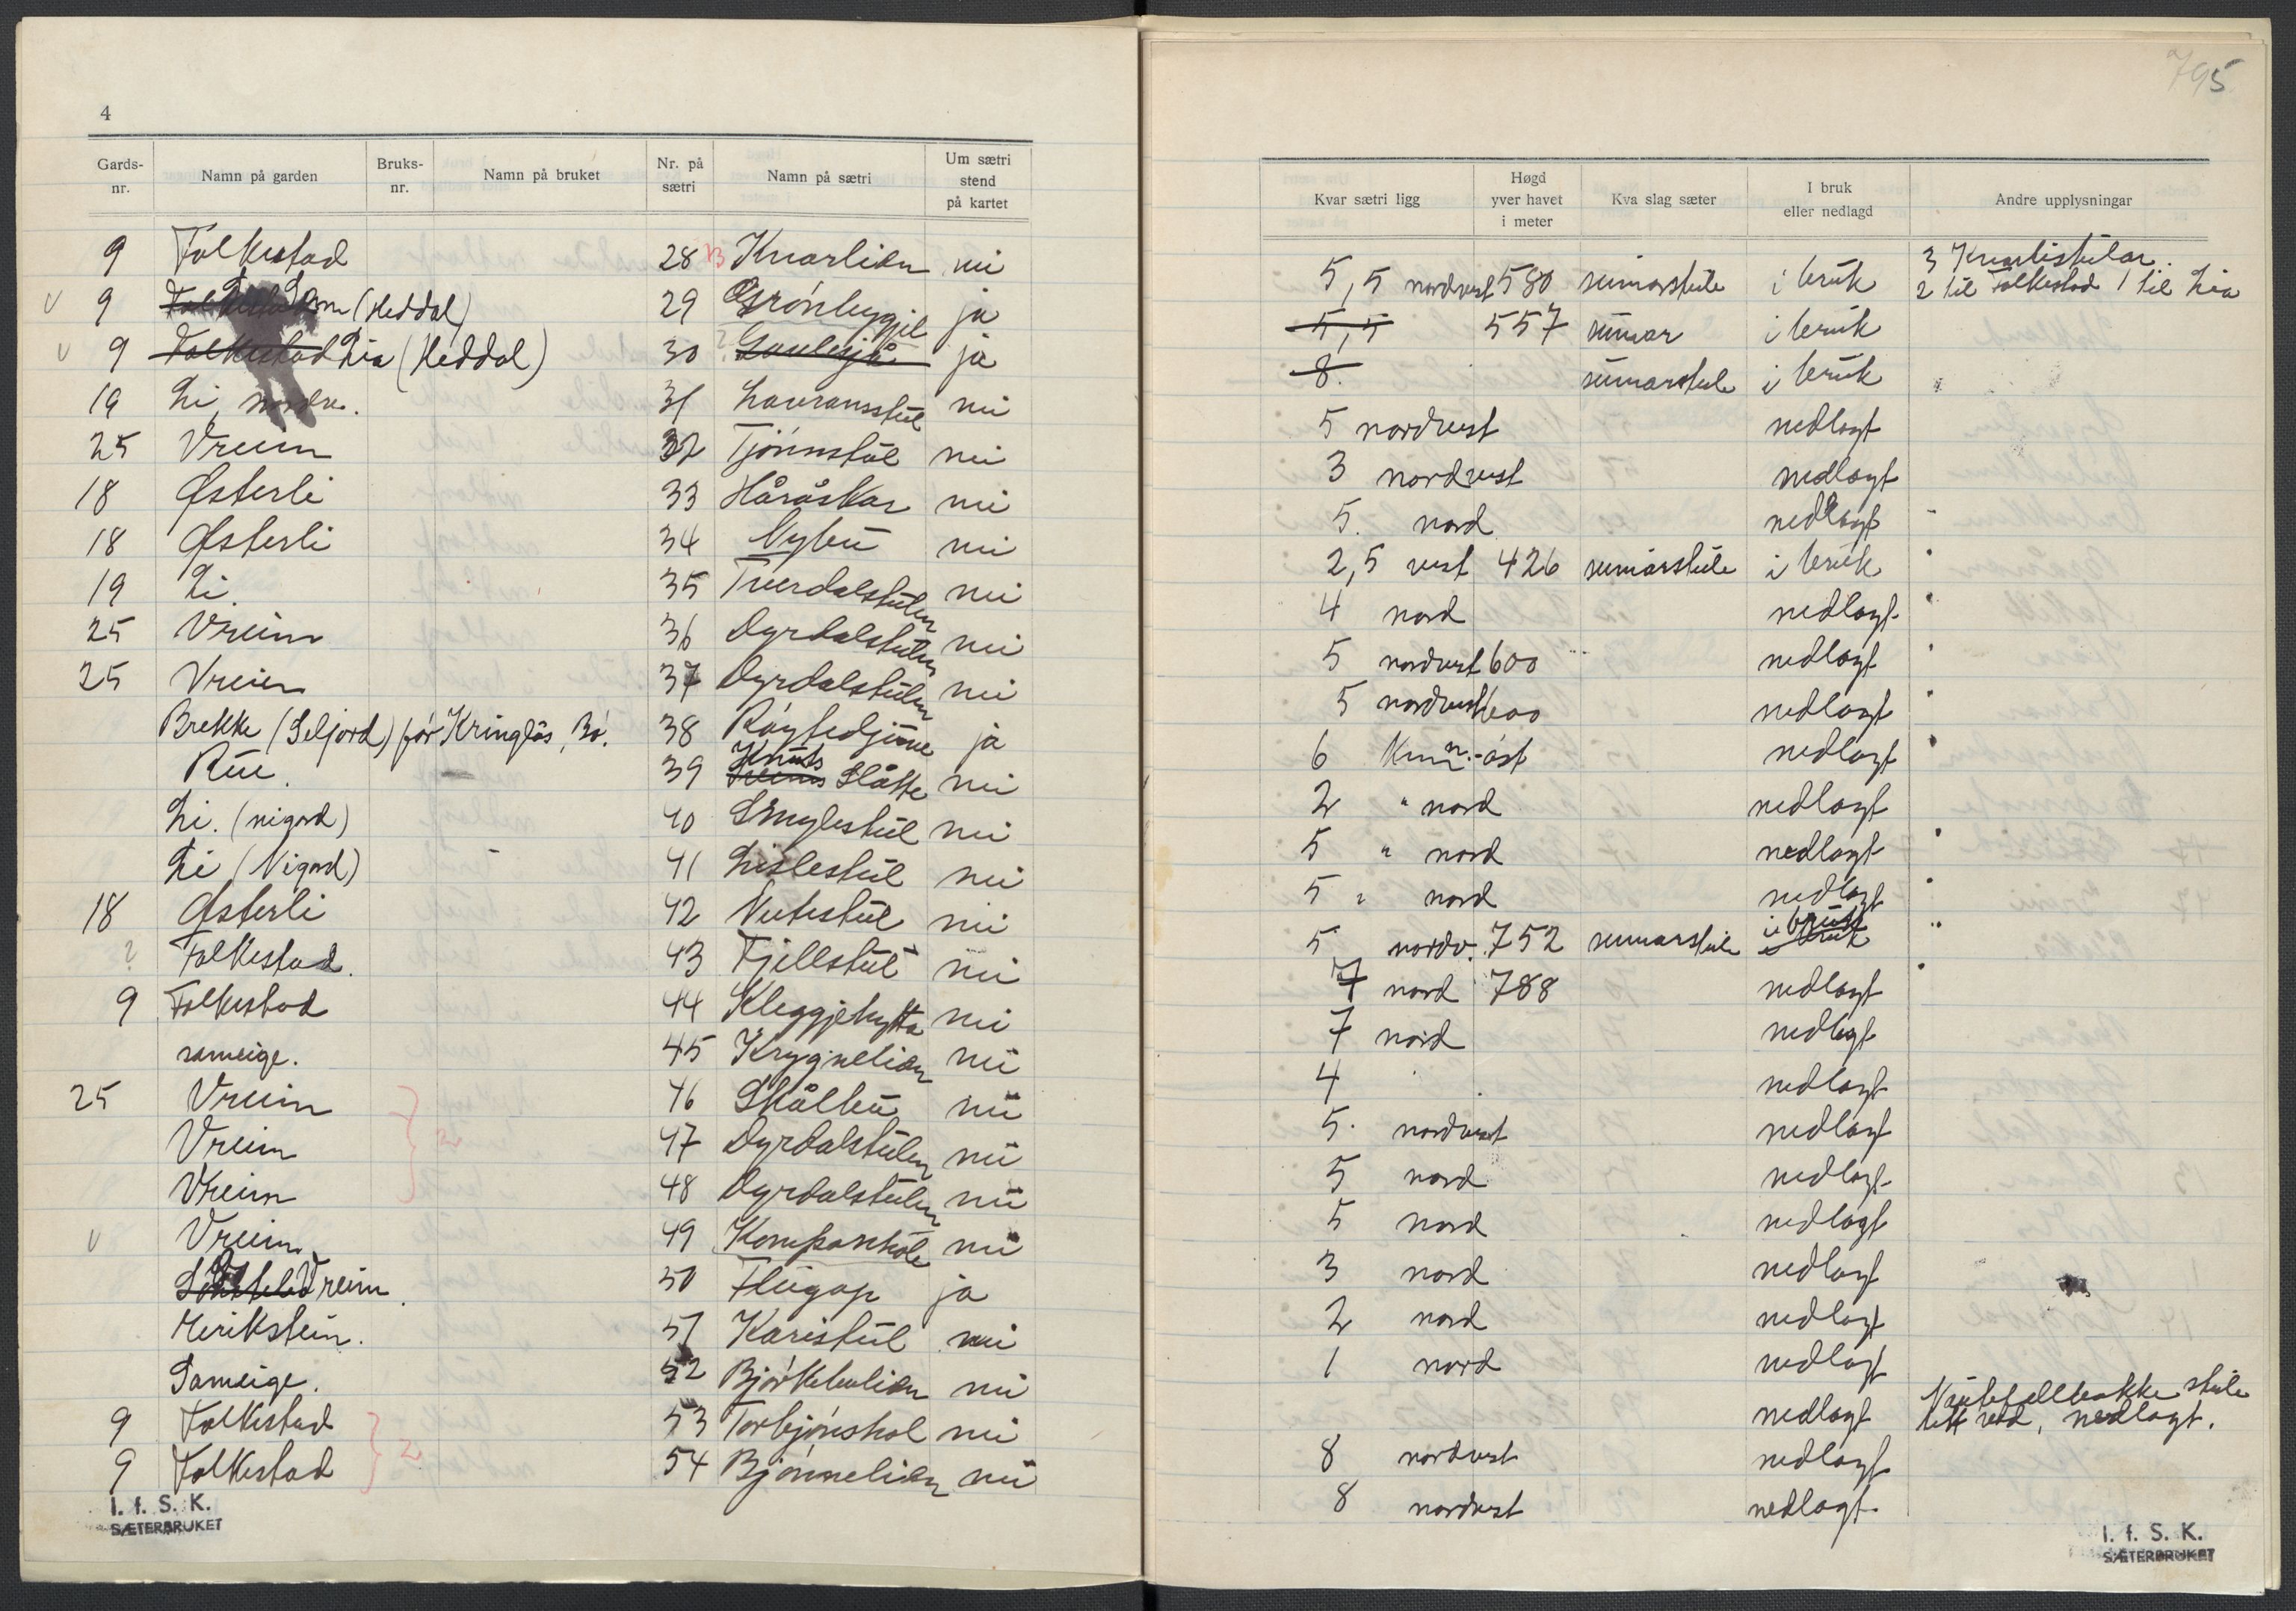 4
795
Gards-nr. Namn på garden Bruks-nr. Namn på bruket Nr. på sætri Namn på sætri Um sætri stend på kartet Kvar sætri ligg Høgd yver havet i meter Kva slag sæter I bruk eller nedlagd Andre upplysningar
9 Folkestad 28 Knarlian nei 5,5 nordvest 580 sumarstüle i brük 3 Knarlistülar. 2 til Folkestad 1 til Lia
v 9 (Heddal) 29 Grónbyggil ja 5,5 557 sümar i brük
v 9 Folkestad Lia (Heddal) 30 ? Gaulesjå ja 8. sümarstule i brük
19 Li, nordre. 31 Lavransstül nei 5 nordvest nedlagt
25 Vreim 32 Tjónnstül nei 3 nordvest nedlagt
18 Østerli 33 Håråskar nei 5. nord nedlagt
18 Østerli 34 Nybü nei 2,5 vest 426 sumarstüle i brük
19 Li 35 Tverdalstülen nei 4 nord nedlagt
25 Vreim 36 Dyrdalstülen nei 5 nordvest 600 nedlagt
25 Vreim 37 Dyrdalstülen nei 5 nordvest 600 nedlagt
Brekke (Seljord) før Kringlås, Bó. 38 ja 6 Km n.-ást nedlagt
Rüe. 39 Knüts Slåtte nei 2 " nord nedlagt
Li. (nigard) 40 Smylestül nei 5 " nord nedlagt
Li (Nigard) 41 Lislestül nei 5 " nord nedlagt
18 Østerli 42 Nutestül nei 5 nordv. 752 sumarstüle i brük
? Folkestad. 43 Fjellstül nei 7 nord 788 nedlagt
9 Folkestad 44 Kleggjehytta nei 7 nord nedlagt
sameige. 45 Krygnelian nei 4 nedlagt
25 Vreim 46 Skålbü nei 5. nordvest nedlagt
Vreim 2 47 Dyrdalstülen nei 5 nord nedlagt
Vreim 48 Dyrdalstülen nei 5 nord nedlagt
v Vreim 49 Kompanhóle nei 3 nord nedlagt
Vreim. 50 Flügop ja 2 nord nedlagt
Herikstein. 51 Karistül nei 1 nord nedlagt
Sameige. 52 nei nedlagt stüle tett ved, nedlagt.
9 Folkestad 53 Torbjónshol nei 8 nordvest nedlagt
9 Folkestad 2 54 Bjónnelian nei 8 nordvest nedlagt.
I. f. S. K.
SÆTERBRUKET
I. f. S. K.
SÆTERBRUKET